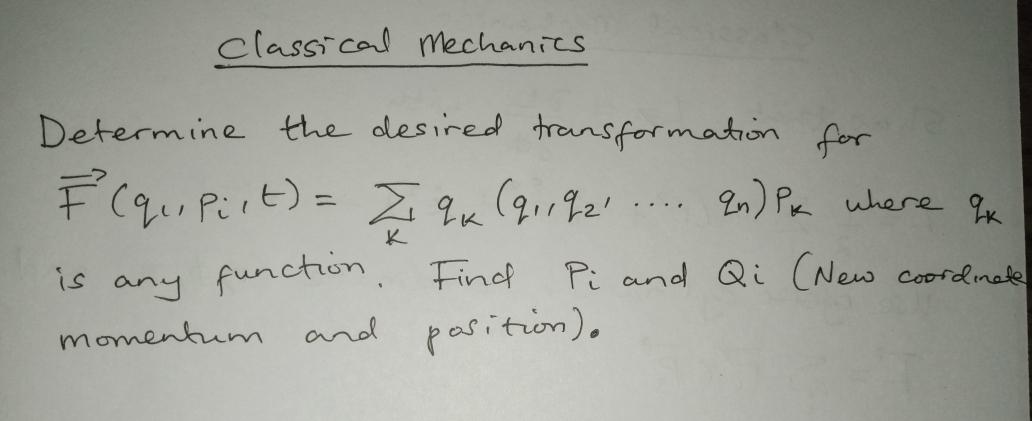 Classical Mechanics
Determine the desired transformation for
F⃗ (qi, Pi, t) = Σ_K q_K (q1, q2, .... qn) P_K where q_K
is any function. Find Pi and Qi (New coordinate
momentum and position).